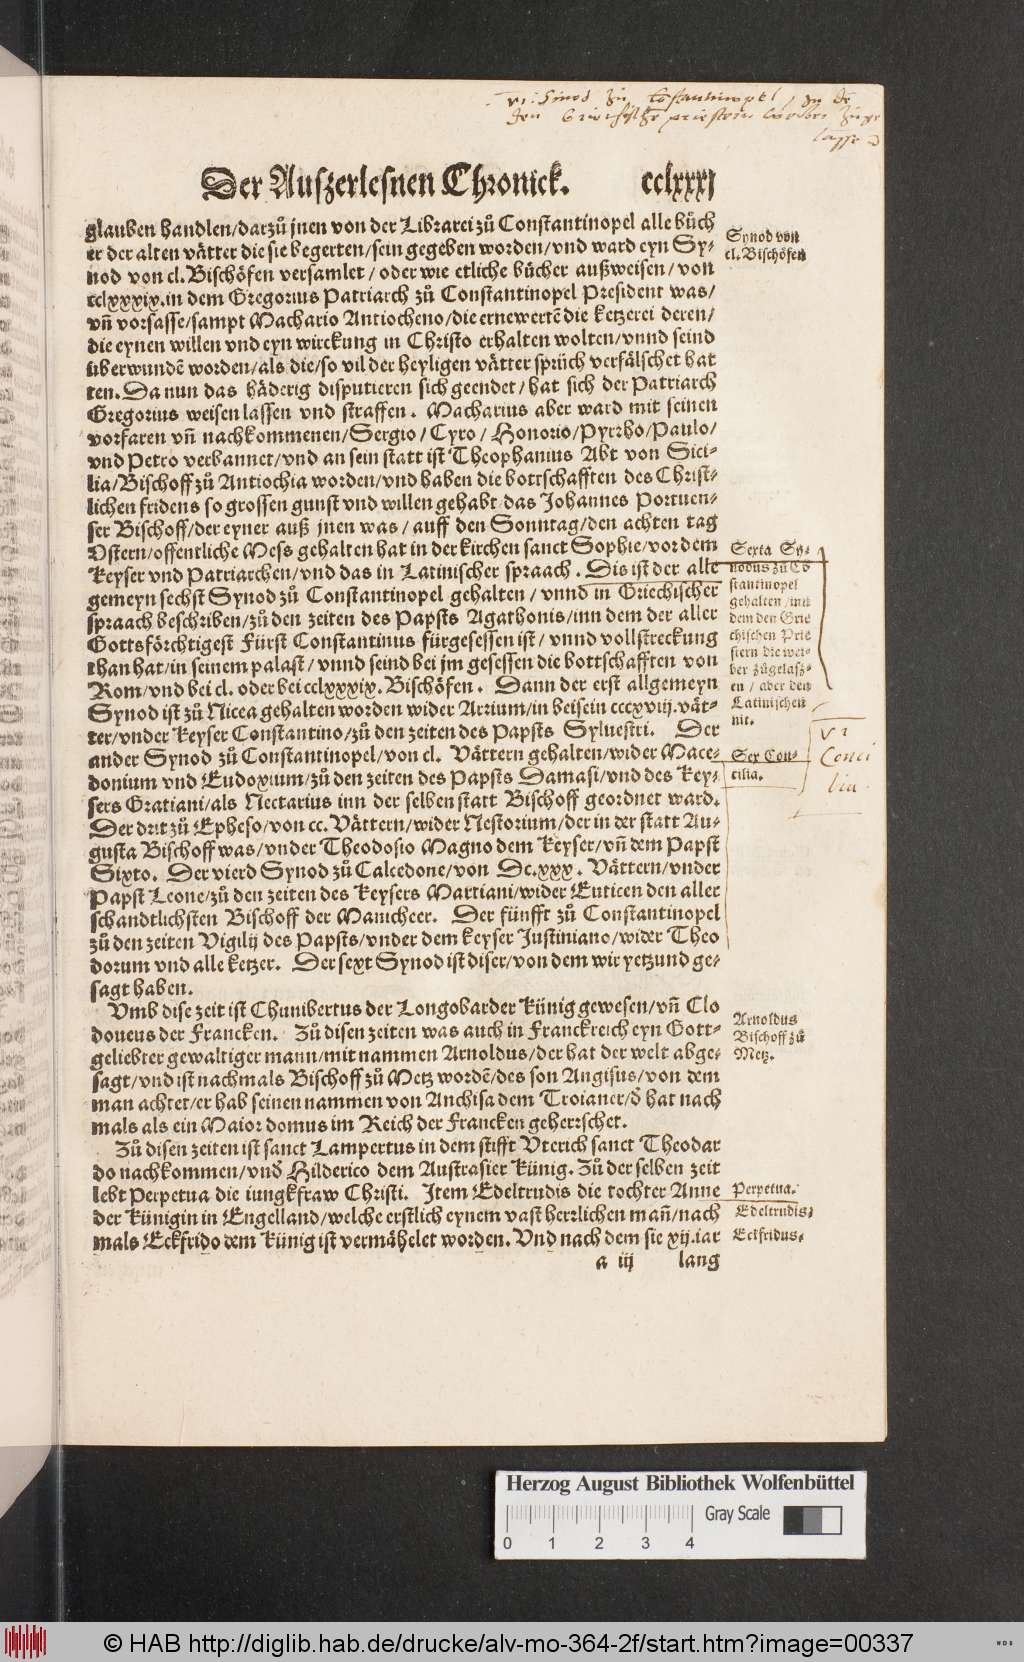 VI. Sinod Zu Constantinopel, In de
den Griechische priestern weiber Zuge
lasse
Der Auſzerleſnen Chronick. cclxxxj
glauben handlen/darzuͦ jnen von der Librarei zuͦ Conſtantinopel alle buͤch
er der alten vaͤtter die ſie begerten/ſein gegeben worden/vnd ward eyn Sy⸗
nod von cl. Biſchoͤfen verſamlet/oder wie etliche buͤcher außweiſen/von
cclxxxix. in dem Gregorius Patriarch zuͦ Conſtantinopel Preſident was/
vñ vorſaſſe/ſampt Machario Antiocheno/die ernewertẽ die ketzerei deren/
die eynen willen vnd eyn wirckung in Chriſto erhalten wolten/vnnd ſeind
uͤberwundẽ worden/als die/ſo vil der heyligen vaͤtter ſpruͤch verfaͤlſchet hat
ten. Da nun das haͤderig diſputieren ſich geendet/hat ſich der Patriarch
Gregorius weiſen laſſen vnd ſtraffen. Macharius aber ward mit ſeinen
vorfaren vñ nachkommenen/Sergio/Cyro/Honorio/Pyrrho/Paulo/
vnd Petro verbannet/vnd an ſein statt iſt Theophanius Abt von Sici⸗
lia/Biſchoff zuͦ Antiochia worden/vnd haben die bottſchafften des Chriſt⸗
lichen fridens ſo groſſen gunſt vnd willen gehabt das Johannes Portuen⸗
ſer Biſchoff/der eyner auß jnen was/auff den Sonntag/den achten tag
Oſtern/offentliche Meſs gehalten hat in der kirchen ſanct Sophie/vor dem
Keyſer vnd Patriarchen/vnd das in Latiniſcher ſpraach. Dis iſt der alle
gemeyn ſechſt Synod zuͦ Conſtantinopel gehalten/vnnd in Griechiſcher
ſpraach beſchriben/zuͦ den zeiten des Papſts Agathonis/inn dem der aller
Gottsfoͤrchtigeſt Fuͤrſt Conſtantinus fuͤrgeſeſſen iſt/vnnd vollſtreckung
than hat/in ſeinem palaſt/vnnd ſeind bei jm geſeſſen die bottſchafften von
Rom/vnd bei cl. oder bei cclxxxix. Biſchoͤfen. Dann der erſt allgemeyn
Synod iſt zuͦ Nicea gehalten worden wider Arrium/in beiſein cccxviij. vaͤt⸗
ter/vnder Keyſer Conſtantino/zuͦ den zeiten des Papſts Sylueſtri. Der
ander Synod zuͦ Conſtantinopel/von cl. Vaͤttern gehalten/wider Mace⸗
donium vnd Eudoxium/zuͦ den zeiten des Papſts Damaſi/vnd des Key⸗
ſers Gratiani/als Nectarius inn der ſelben ſtatt Biſchoff geordnet ward.
Der drit zuͦ Epheſo/von cc. Vaͤttern/wider Neſtorium/der in der ſtatt Au⸗
guſta Biſchoff was/vnder Theodoſio Magno dem Keyſer/vñ dem Papſt
Sixto. Der vierd Synod zuͦ Calcedone/von Dc.xxx. Vaͤttern/vnder
Papſt Leone/zuͦ den zeiten des Keyſers Martiani/wider Euticen den aller
ſchandtlichſten Biſchoff der Manicheer. Der fuͤnfft zuͦ Conſtantinopel
zuͦ den zeiten Vigilij des Papſts/vnder dem keyſer Juſtiniano/wider Theo
dorum vnd alle ketzer. Der ſext Synod iſt diſer/von dem wir yetzund ge⸗
ſagt haben.
Vmb diſe zeit iſt Chunibertus der Longobarder Kuͤnig geweſen/vñ Clo
doueus der Francken. Zuͦ diſen zeiten was auch in Franckreich eyn Gott⸗
geliebter gewaltiger mann/mit nammen Arnoldus/der hat der welt abge⸗
ſagt/vnd iſt nachmals Biſchoff zuͦ Metz wordẽ/des ſon Angiſus/von dem
man achtet/er hab ſeinen nammen von Anchiſa dem Troianer/d̃ hat nach
mals als ein Maior domus im Reich der Francken geherrſchet.
Zuͦ diſen zeiten iſt ſanct Lampertus in dem ſtifft Vterich ſanct Theodar
do nachkommen/vnd̃ Hilderico dem Auſtraſier Kuͤnig. Zuͦ der ſelben zeit
lebt Perpetua die iungkfraw Chriſti. Item Edeltrudis die tochter Anne
der Kuͤnigin in Engelland/welche erſtlich eynem vaſt herrlichen mañ/nach
mals Eckfrido dem Kuͤnig iſt vermaͤhelet worden. Vnd nach dem ſie xij. iar
a iij lang
Synod von
cl. Biſchoͤfen
Sexta Sy⸗
nodus zuͦ Cõ
ſtantinopel
gehalten/inn
dem den Grie
chiſchen Prie
ſtern die wei⸗
ber zuͦgelaſz⸗
en/aber den
Latiniſchen
nit.
Sex Con⸗
cilia.
VI
Conci
lia
Arnoldus
Biſchoff zuͦ
Metz.
Perpetua.
Edeltrudis.
Eckfridus.
Herzog August Bibliothek Wolfenbüttel
Gray Scale
0 1 2 3 4
© HAB http://diglib.hab.de/drucke/alv-mo-364-2f/start.htm?image=00337